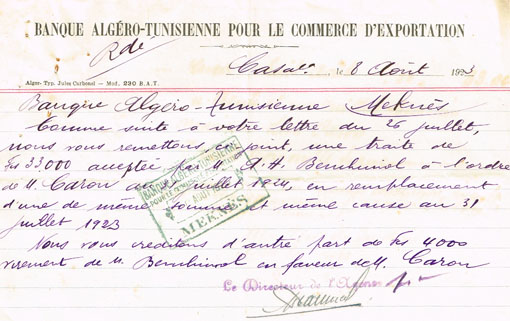 BANQUE ALGÉRO-TUNISIENNE POUR LE COMMERCE D'EXPORTATION
Rde
Alger- Typ. Jules Carbonel - Mod. 230 B.A.T.
Casa le 8 Août 1923
Banque Algéro-Tunisienne Meknès
Comme suite à votre lettre du 26 juillet,
nous vous remettons ci joint, une traite de
Frs 33.000 acceptée par M. A. H. à l'ordre
de M. Caron au juillet 1924, en remplacement
d'une de même somme et même cause au 31
juillet 1923
Nous vous créditons d'autre part de Frs 4000
virement de M. en faveur de M. Caron
Le Directeur de l'Agence
BANQUE ALGÉRO-TUNISIENNE
MEKNÈS